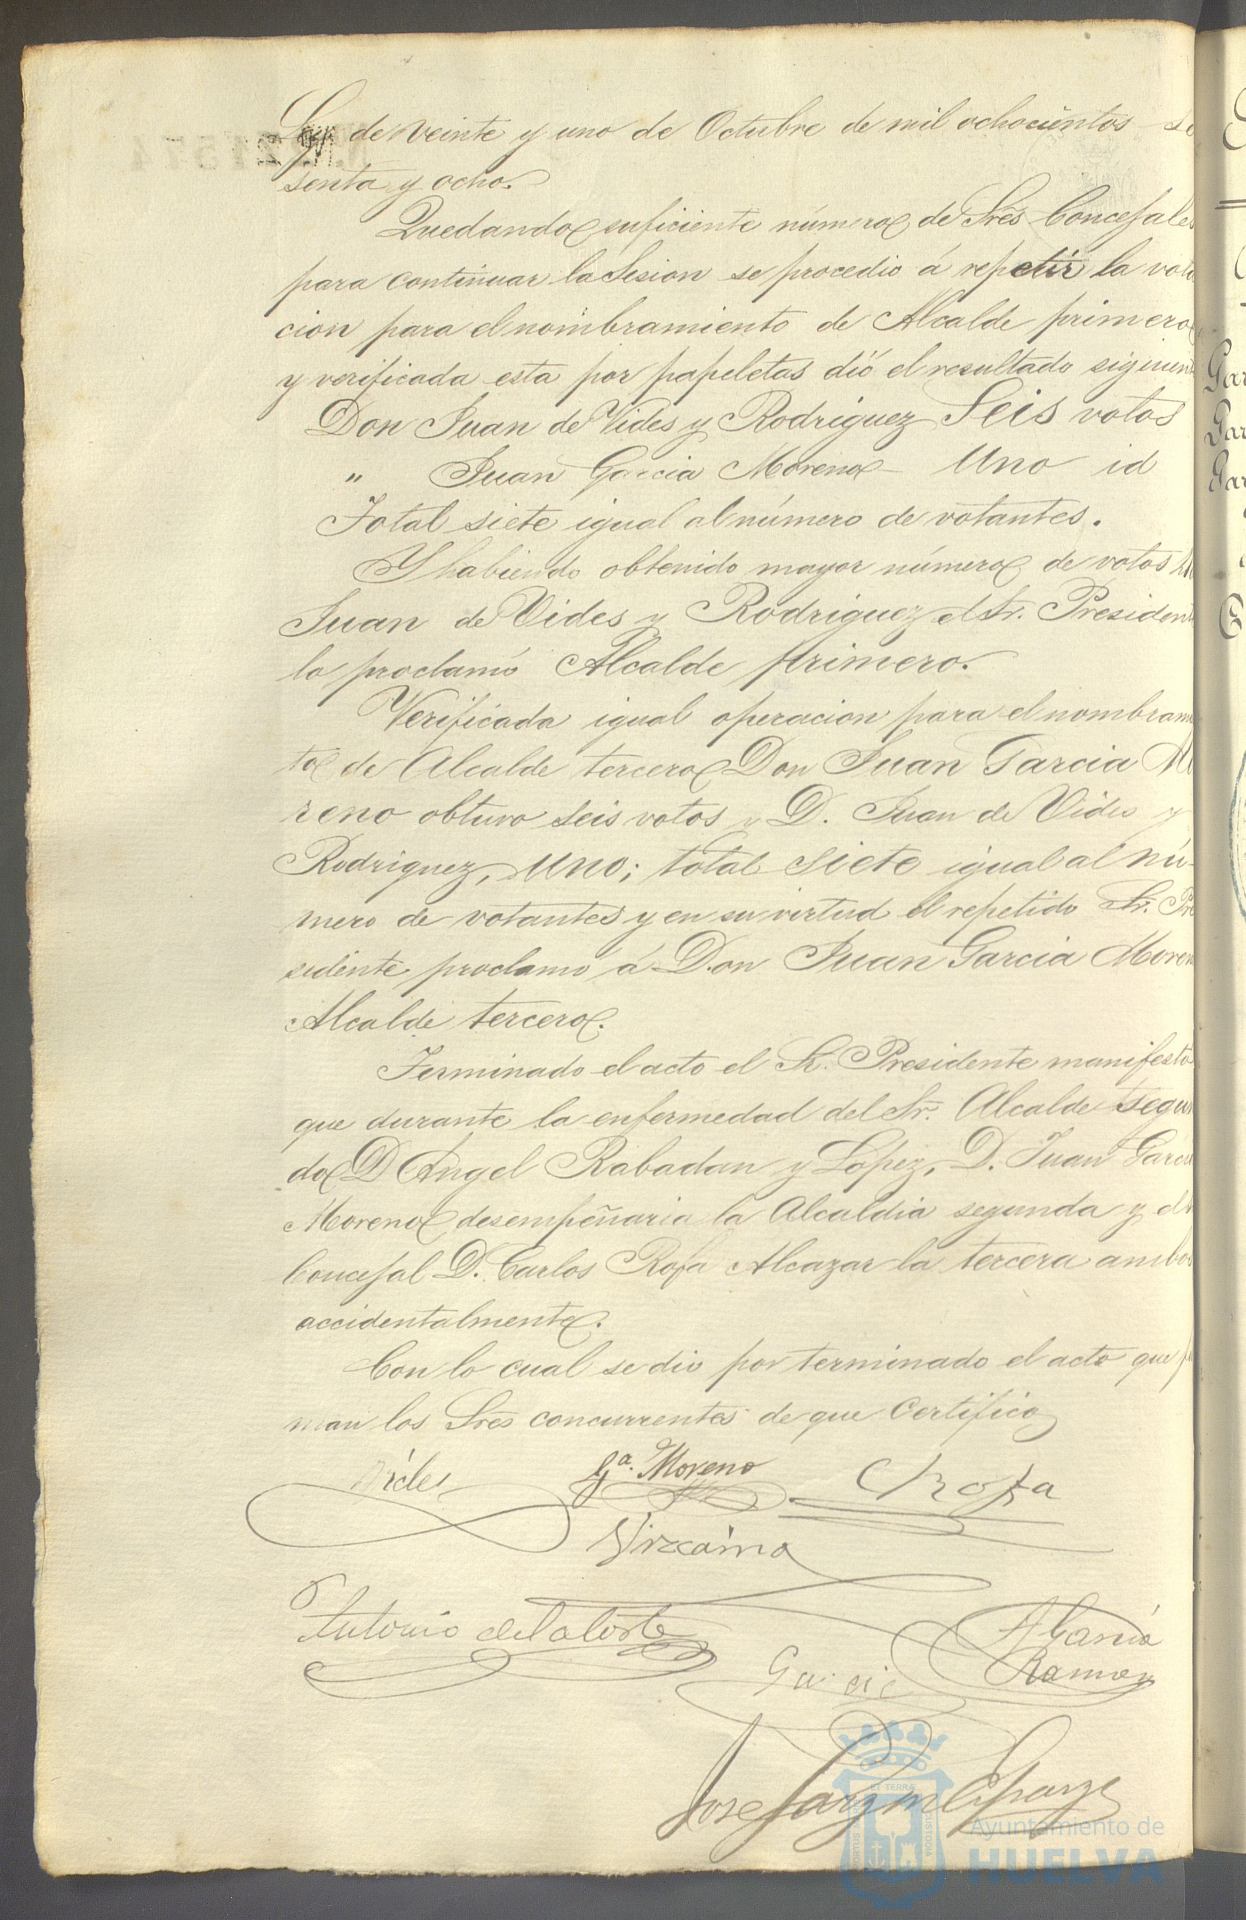 Ley de veinte y uno de Octubre de mil ochocientos se
senta y ocho.
Quedando suficiente número de Sres Concejales
para continuar la Sesion se procedio á repetir la vota
cion para el nombramiento de Alcalde primero
y verificada esta por papeletas dió el resultado siguient
Don Juan de Vides y Rodriguez Seis votos
" Juan Garcia Moreno - Uno id
Total siete igual al número de votantes.
Y habiendo obtenido mayor número de votos
Juan de Vides y Rodriguez el Sr. President
lo proclamó Alcalde primero.
Verificada igual operacion para el nombram
to de Alcalde tercero Don Juan Garcia Mo
reno obtuvo seis votos y D. Juan de Vides y
Rodriguez, uno; total siete igual al nú-
mero de votantes y en su virtud el repetido Sr. Pre
sidente proclamo á Don Juan Garcia Moren
Alcalde tercero.
Terminado el acto el Sr. Presidente manifestó
que durante la enfermedad del Sr. Alcalde segun
do D Angel Rabadan y Lopez, D. Juan Garcia
Moreno desempeñaria la Alcaldia segunda y el
Concejal D. Carlos Rofa Alcazar la tercera ambos
accidentalmente.
Con lo cual se dio por terminado el acto que fir
man los Sres concurrentes de que Certifico
Vides Ga. Moreno C Rofa
Vizcaino
Antonio de la Corte
A Garcia
Ramos
Garcia
Jose
Ayuntamiento de
HUELVA